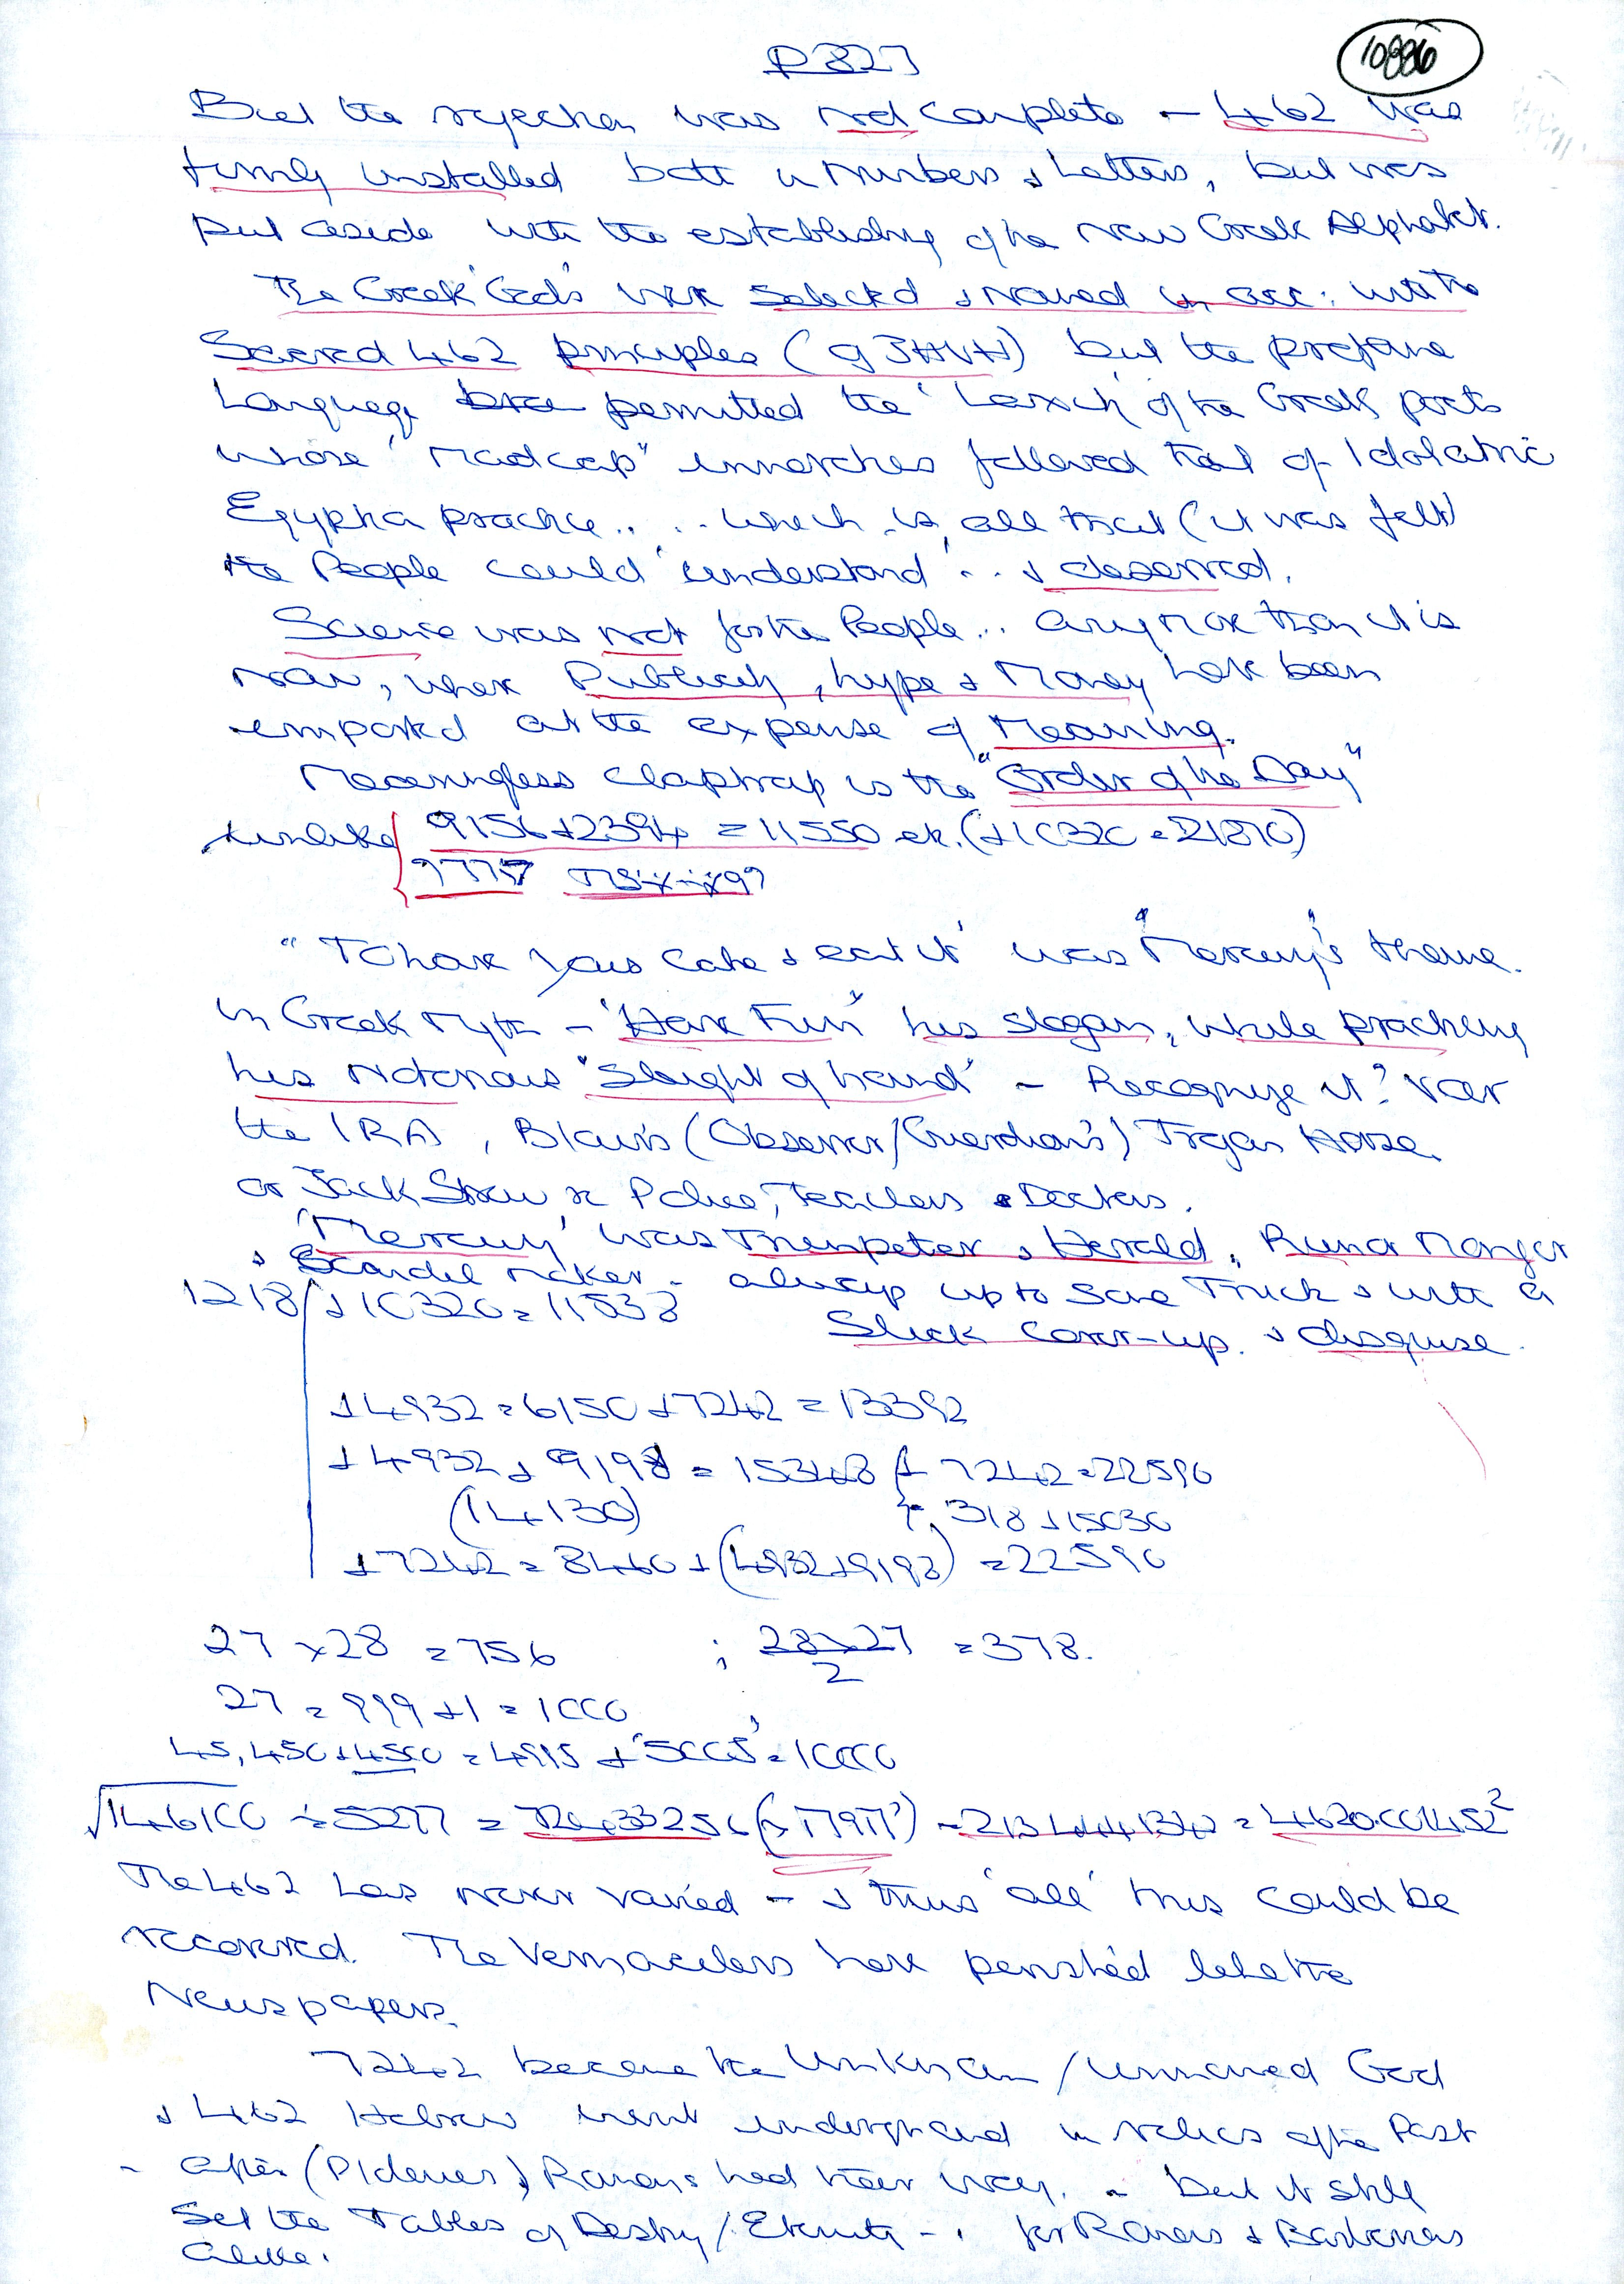 P 827
10886
But the rejection was not complete - 462 was
firmly installed both in Numbers & Letters, but was
put aside with the establishing of the New Greek Alphabet.
The Greek 'Gods' were selected & named in acc: with the
Sacred 462 principles (of JHVH) but the profane
Language permitted the 'Larxich' of the Greek poets
whose 'Madcap" followed that of Idolatric
Egyptian practice.... which is all that (it was felt)
the People could 'understand' .. & deserved.
Science was not for the People... any more than it is
now, when Publicity, hype & Money have been
imported at the expense of Meaning.
Meaningless claptrap is the "Order of the Day"
unlike 9156 + 2394 = 11550 etc. (+ 10320 = 21870)
"To have your Cake & eat it' was "Mercury's" theme.
in Greek Myth - 'Have Fun' his slogan, while practicing
his notorious 'Sleight of hand' - Recognize it? viz
the IRA, Blair's (Observer/Guardian's) Trojan Horse
or Jack Straw x Police, Teachers & Doctors.
'Mercury' was Trumpeter & Herald, Rumor Monger
& Scandal maker - always up to some Trick & with a
1218 + 10320 = 11538
Slick cover-up. & disguise.
+ 4932 = 6150 + 7242 = 13392
+ 4932 + 9198 = 15348 + 7242 = 22590
(14130) 318 + 15030
+ 7242 = 8460 + (4932 + 9198) = 22590
27 x 28 = 756 ; 28 x 27 / 2 = 378.
27 = 999 + 1 = 1000
45, 450 + 4500 = 4995 + '5005' = 10000
√146100 ÷ 5277 = 72.433256 - 213444134 = 4620.001452²
The 462 has never varied - & thus 'all' this could be
recovered. The Vernaculars have perished like the
Newspapers.
7242 became the Unknown / unnamed God
& 462 Hebrew went underground in relics of the Past
- after (Ptolemies) & Romans had their way. - but it still
Set the Tables of Destiny / Eternity - for Romans & Barbarians
alike.